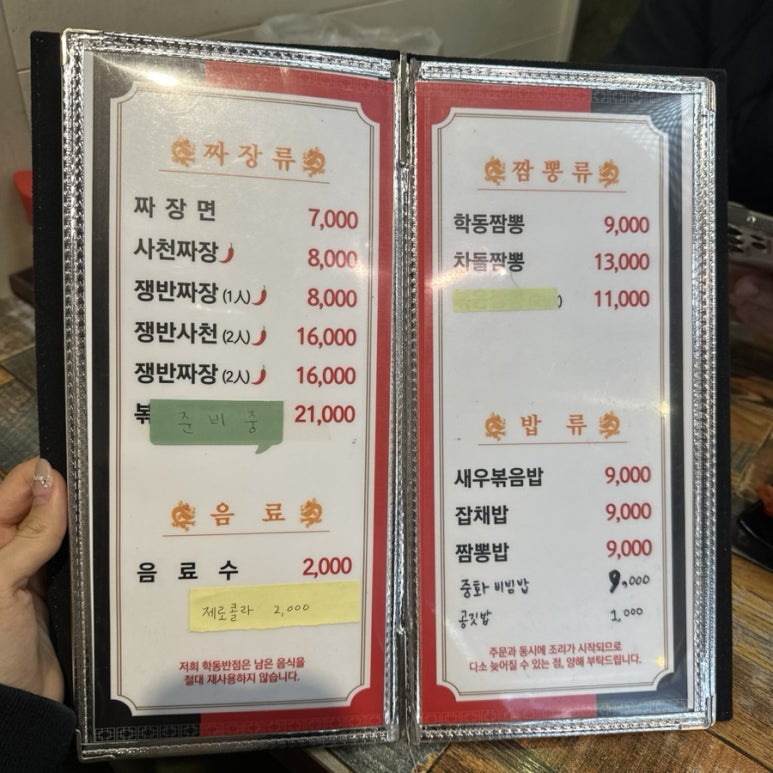 짜장류
짜장면 7,000
사천짜장 8,000
쟁반짜장 (1人) 8,000
쟁반사천 (2人) 16,000
쟁반짜장 (2人) 16,000
준비중 21,000
음료
음료수 2,000
제로콜라 2,000
저희 학동반점은 남은 음식을
절대 재사용하지 않습니다.
짬뽕류
학동짬뽕 9,000
차돌짬뽕 13,000
11,000
밥류
새우볶음밥 9,000
잡채밥 9,000
짬뽕밥 9,000
중화 비빔밥 9,000
공깃밥 1,000
주문과 동시에 조리가 시작되므로
다소 늦어질 수 있는 점, 양해 부탁드립니다.